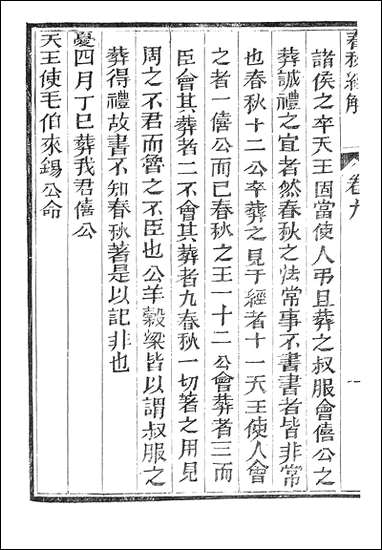 春秋經解　卷九　一
諸侯之卒天王固當使人弔且葬之叔服會僖公之
葬誠禮之宜者然春秋之法常事不書書者皆非常
也春秋十二公卒葬之見于經者十一天王使人會
之者一僖公而已春秋之王一十二公會葬者三而
臣會其葬者二不會其葬者九春秋一切著之用見
周之不君而魯之不臣也公羊穀梁皆以謂叔服之
葬得禮故書不知春秋著是以記非也
夏四月丁巳葬我君僖公
天王使毛伯來錫公命